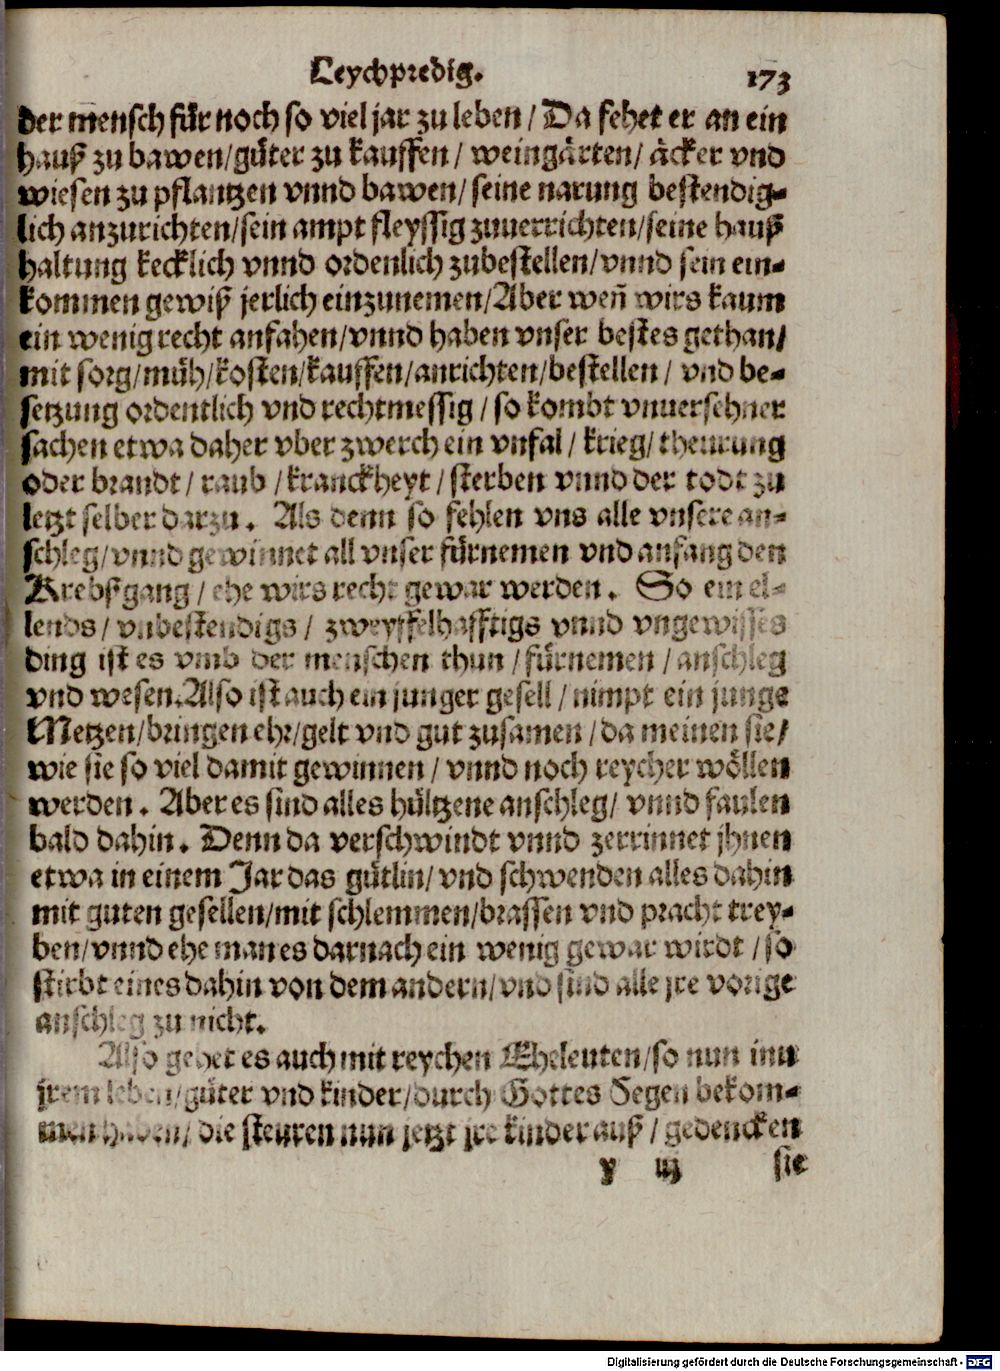 Leychpredig. 173
der mensch für noch so viel jar zu leben / Da fehet er an ein
hauß zu bawen/güter zu kauffen / weingärten/ äcker vnd
wiesen zu pflantzen vnnd bawen/ seine narung bestendig-
lich anzurichten/sein ampt fleyssig zuuerrichten/seine hauß
haltung kecklich vnnd ordenlich zubestellen/vnnd sein ein-
kommen gewiß jerlich einzunemen/Aber weñ wirs kaum
ein wenig recht anfahen/vnnd haben vnser bestes gethan/
mit sorg/müh/kosten/kauffen/anrichten/bestellen / vnd be-
setzung ordentlich vnd rechtmessig / so kombt vnuersehner
sachen etwa daher vber zwerch ein vnfal / krieg/ theurung
oder brandt / raub / kranckheyt / sterben vnnd der todt zu
letzt selber darzu. Als denn so fehlen vns alle vnsere an-
schleg/vnnd gewinnet all vnser fürnemen vnd anfang den
Krebßgang / ehe wirs recht gewar werden. So ein el-
lends / vnbestendigs / zweyffelhafftigs vnnd vngewisses
ding ist es vmb der menschen thun / fürnemen / anschleg
vnd wesen. Also ist auch ein junger gesell / nimpt ein junge
Metzen/bringen ehr/gelt vnd gut zusamen / da meinen sie/
wie sie so viel damit gewinnen / vnnd noch reycher wöllen
werden. Aber es sind alles hültzene anschleg/ vnnd faulen
bald dahin. Denn da verschwindt vnnd zerrinnet jhnen
etwa in einem Jar das gütlin/ vnd schwenden alles dahin
mit guten gesellen/mit schlemmen/brassen vnd pracht trey-
ben/vnnd ehe man es darnach ein wenig gewar wirdt / so
stirbt eines dahin von dem andern/vnd sind alle jre vorige
anschleg zu nicht.
Also gehet es auch mit reychen Eheleuten/so nun inn
jrem leben/güter vnd kinder/durch Gottes Segen bekom-
men haben/ die steuren nun jetzt jre kinder auß / gedencken
y iij sie
Digitalisierung gefördert durch die Deutsche Forschungsgemeinschaft - DFG